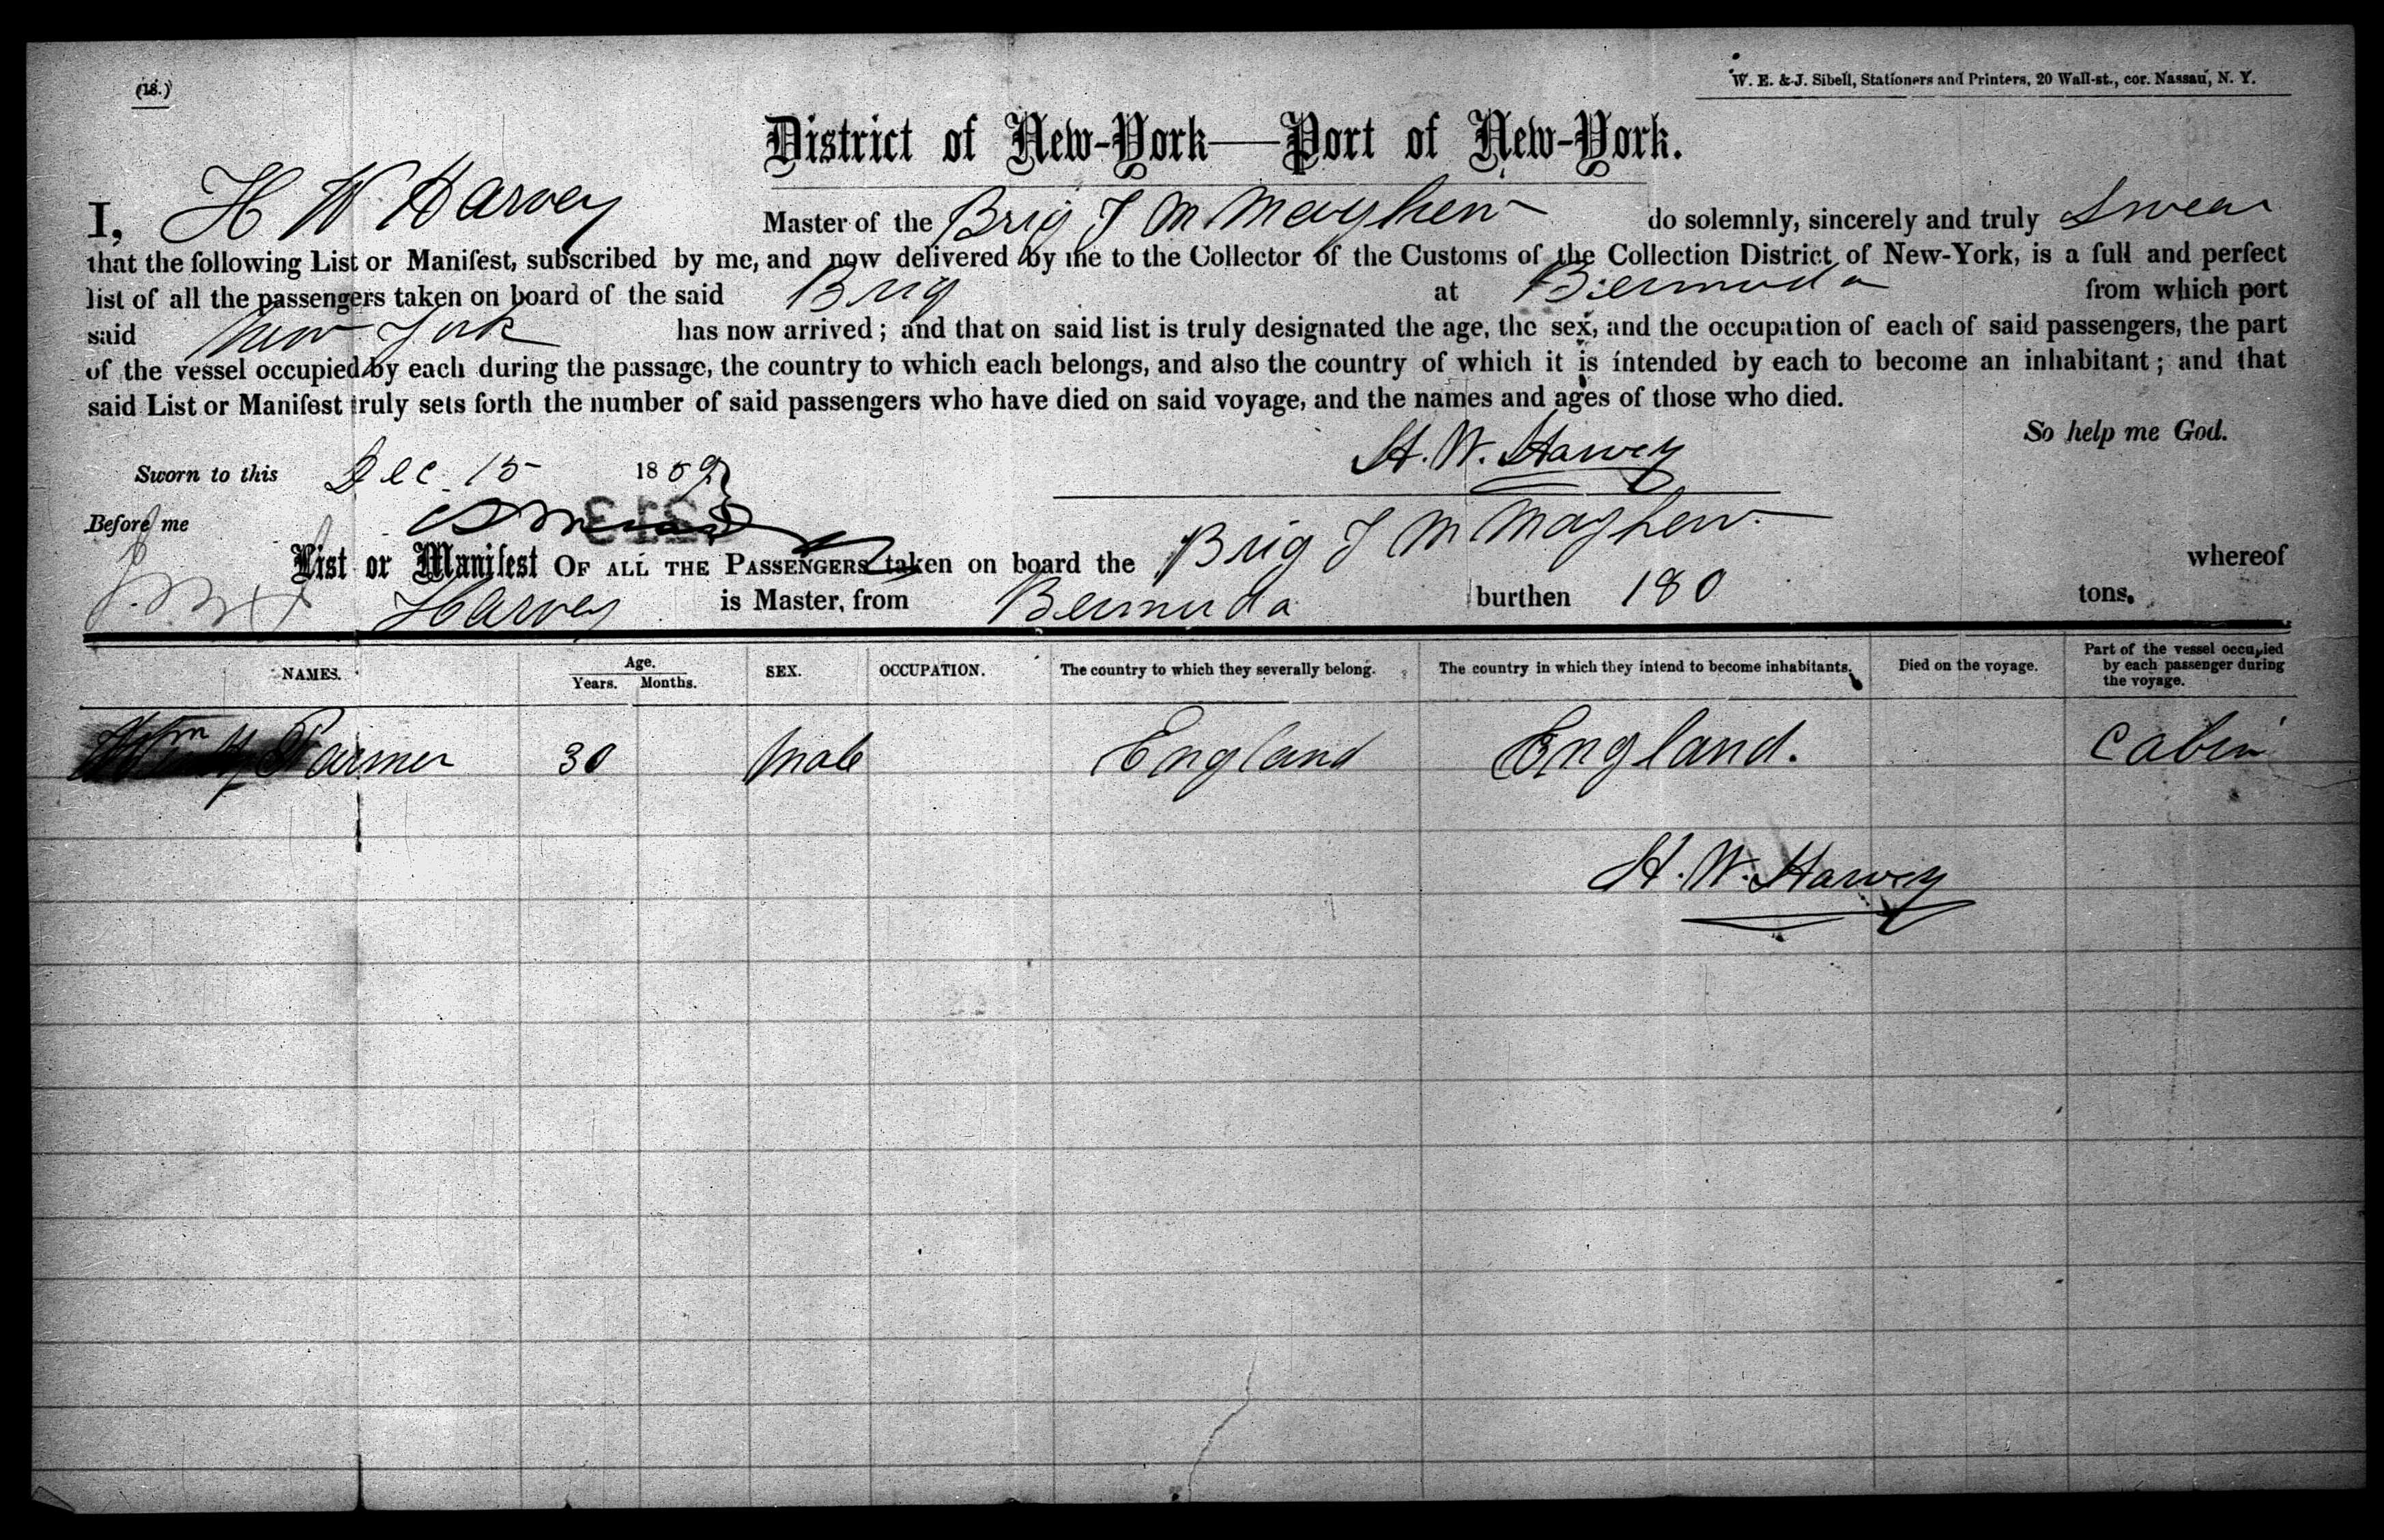 (18.)
W. E. & J. Sibell, Stationers and Printers, 20 Wall-st., cor. Nassau, N. Y.
District of New-York—Port of New-York.
I, H W Harvey Master of the Brig J M Mayhew do solemnly, sincerely and truly Swear
that the following List or Manifest, subscribed by me, and now delivered by me to the Collector of the Customs of the Collection District of New-York, is a full and perfect
list of all the passengers taken on board of the said Brig at Bermuda from which port
said New York has now arrived; and that on said list is truly designated the age, the sex, and the occupation of each of said passengers, the part
of the vessel occupied by each during the passage, the country to which each belongs, and also the country of which it is intended by each to become an inhabitant; and that
said List or Manifest truly sets forth the number of said passengers who have died on said voyage, and the names and ages of those who died.
So help me God.
Sworn to this Dec. 15 1859 H. W. Harvey
Before me
List or Manifest OF ALL THE PASSENGERS taken on board the Brig J M Mayhew whereof
Harvey is Master, from Bermuda burthen 180 tons.
NAMES. Age. Years. Months. SEX. OCCUPATION. The country to which they severally belong. The country in which they intend to become inhabitants. Died on the voyage. Part of the vessel occupied by each passenger during the voyage.
30 Male England England. Cabin
H. W. Harvey